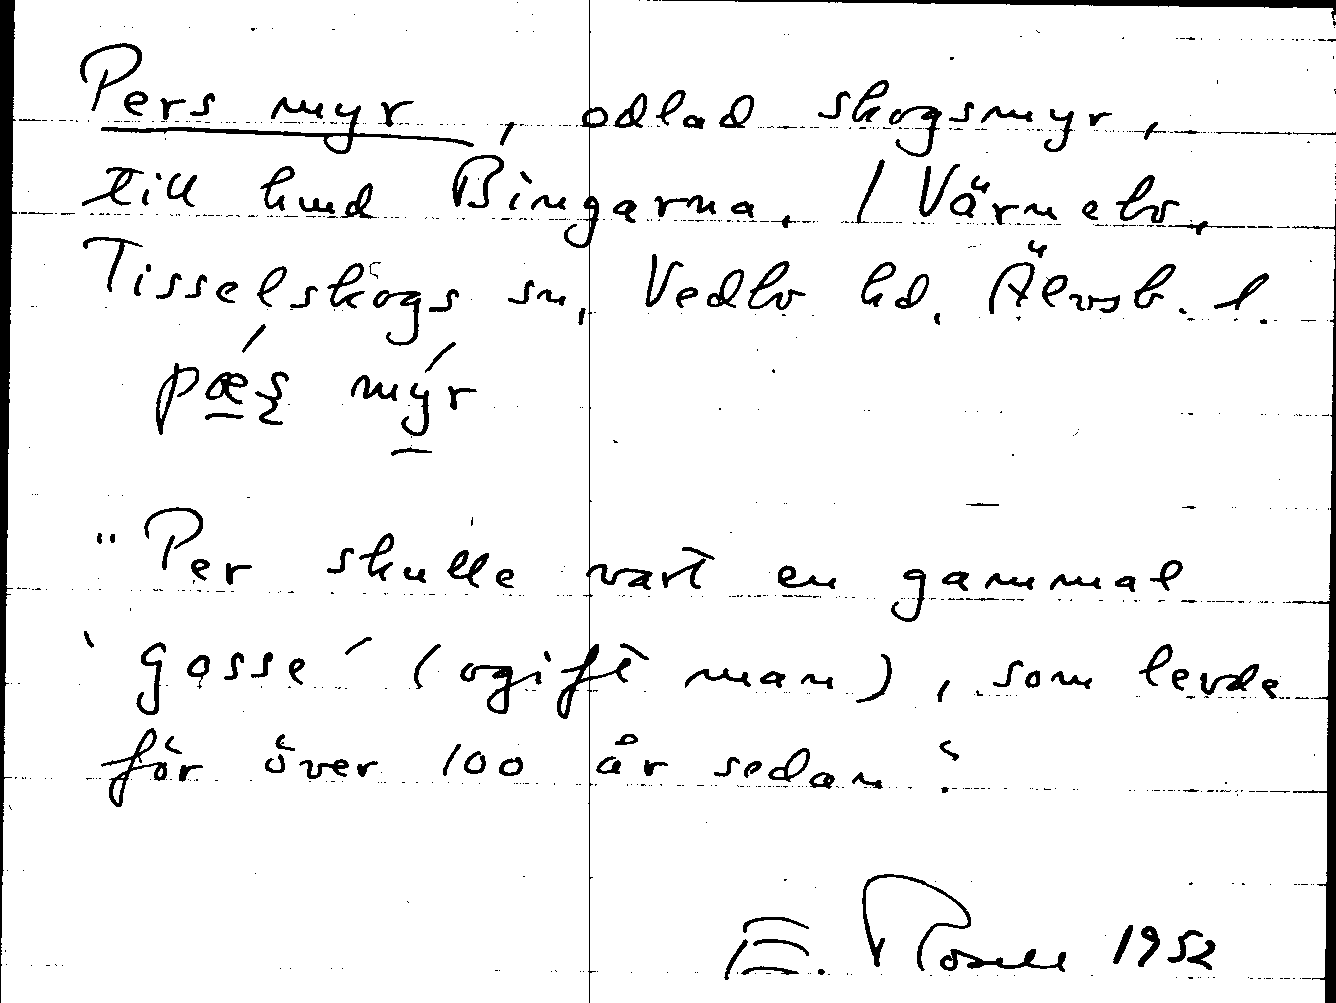 Pers myr, odlad skogsmyr,
till hmd Bingarna, / Värmebo,
Tisselskogs sn, Vedbo hd, Älvsb. l.
pæʂ mýr
"Per skulle vart en gammal
'gosse' (ogift man), som levde
för över 100 år sedan".
E. Rosell 1952